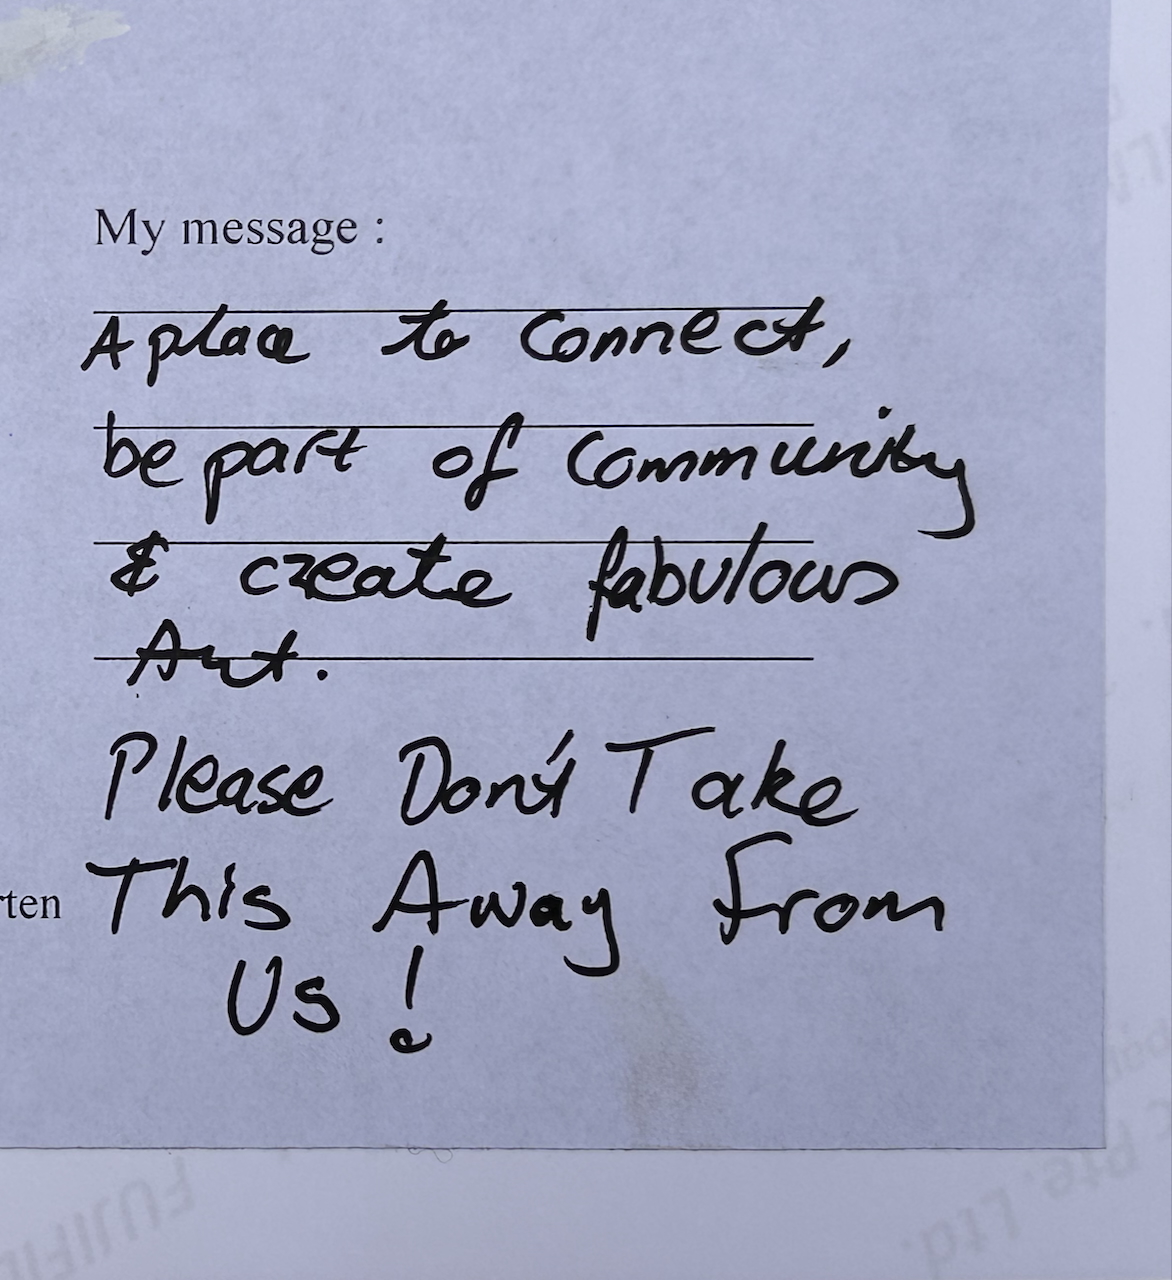 My message :
A place to connect,
be part of Community
& create fabulous
Art.
Please Don't Take
This Away From
rten
Us !
FUJIFI
pte. Ltd.